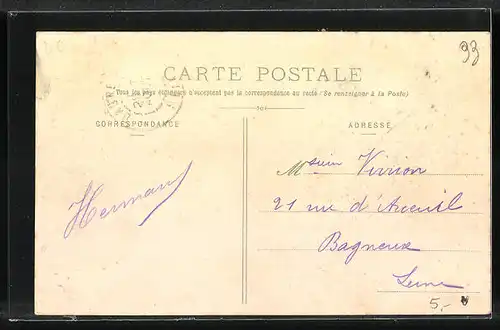 93
CARTE POSTALE
Tous les pays étrangers n'acceptent pas la correspondance au recto (Se renseigner à la Poste)
CORRESPONDANCE
ADRESSE
Hermans
Msieur Vivion
21 rue d'Arcueil
Bagneux
Seine
5,-